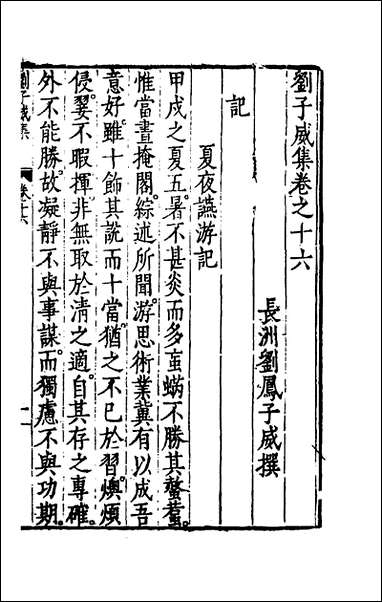 劉子威集卷之十六
長洲劉鳳子威撰
記
夏夜讌游記
甲戌之夏五暑不甚炎而多䖟蟎不勝其螫蜇
惟當晝掩閣綜述所聞游思術業冀有以成吾
意好雖十飾其説而十當猶之不已於習燠煩
侵翣不暇揮非無取於清之適自其存之專確
外不能勝故凝靜不與事謀而獨慮不與功期
劉子威集 卷十六 一